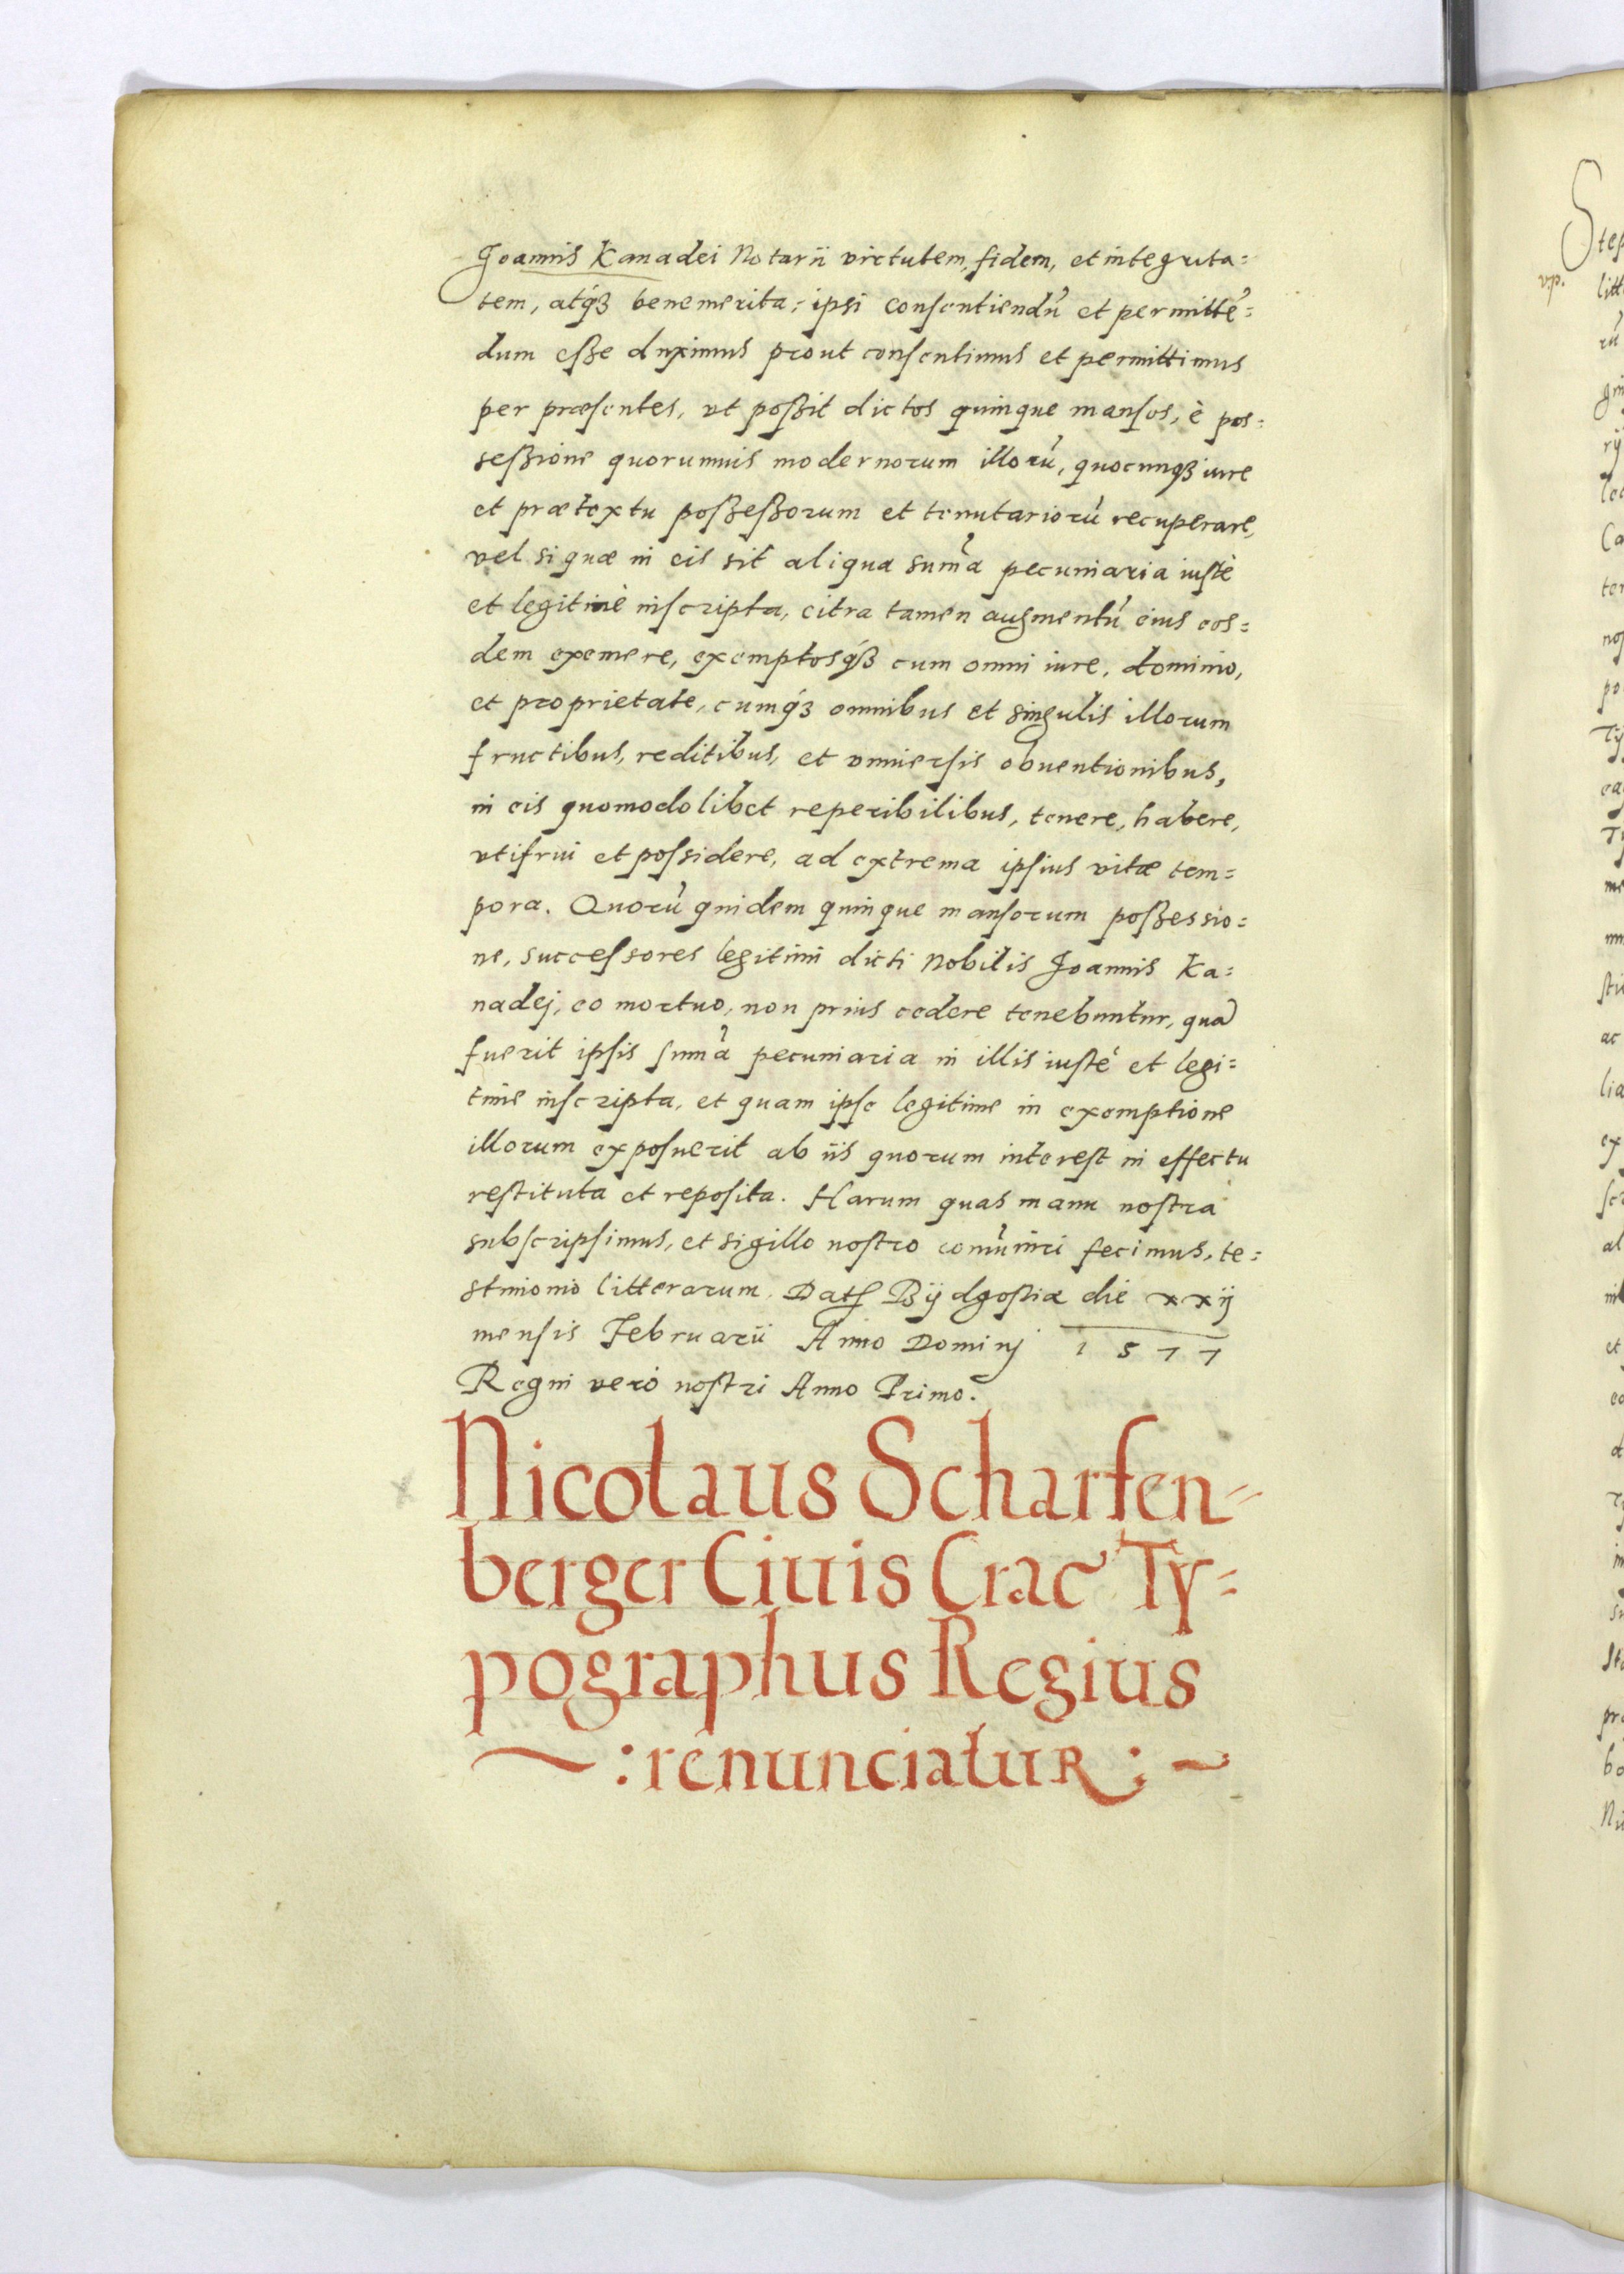 Joannis Kanadei Notarii virtutem, fidem, et integrita=
tem, atq́ꝫ benemerita, ipsi consentiendũ et permittẽ=
dum eſße duximus prout consentimus et permittimus
per præsentes, vt poſßit dictos quinque mansos, è pos=
seſßione quorumuis modernorum illorũ, quocunqꝫ iure
et prætextu poſßeſßorum et tenutariorũ recuperare,
vel si quæ in eis sit aliqua sum̃a pecuniaria iustè
et legitimè inscripta, citra tamen augmentũ eius eos=
dem exemere, exemptosq́ꝫ cum omni iure, dominio,
et proprietate, cumq́ꝫ omnibus et singulis illorum
fructibus, reditibus, et vniuersis obuentionibus,
in eis quomodolibet reperibilibus, tenere, habere,
vtifrui et possidere, ad extrema ipsius vitæ tem=
pora. Quorũ quidem quinque mansorum poſßessio=
ne, successores legitimi dicti Nobilis Joannis Ka=
nadej, eo mortuo, non prius cedere tenebuntur, quã
fuerit ipsis sum̃a pecuniaria in illis iustè et legi=
time inscripta, et quam ipse legitime in exemptione
illorum exposuerit ab iis quorum interest in effectu
restituta et reposita. Harum quas manu nostra
subscripsimus, et sigillo nostro com̃uniri fecimus, te=
stimonio litterarum. Datꝭ Bÿdgostiæ die xxij
mensis Februarii Anno Dominj 1577
Regni verò nostri Anno Primo.
Nicolaus Scharfen=
berger Ciuis Crac̃ Ty=
pographus Regius
~ :renunciatur: ~
vp.